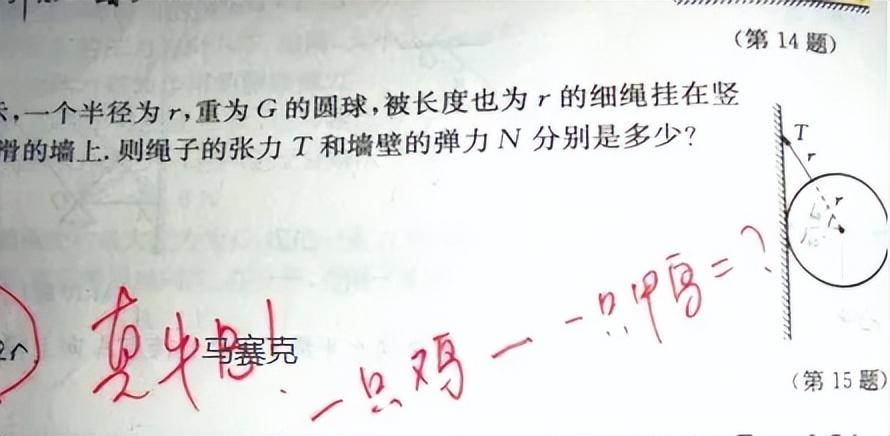 (第 14 题)
,一个半径为 r,重为 G 的圆球,被长度也为 r 的细绳挂在竖
滑的墙上.则绳子的张力 T 和墙壁的弹力 N 分别是多少?
T
r
r
2r
真牛
马赛克
!
一只鸡 — 一只甲鸟 = ?
(第 15 题)